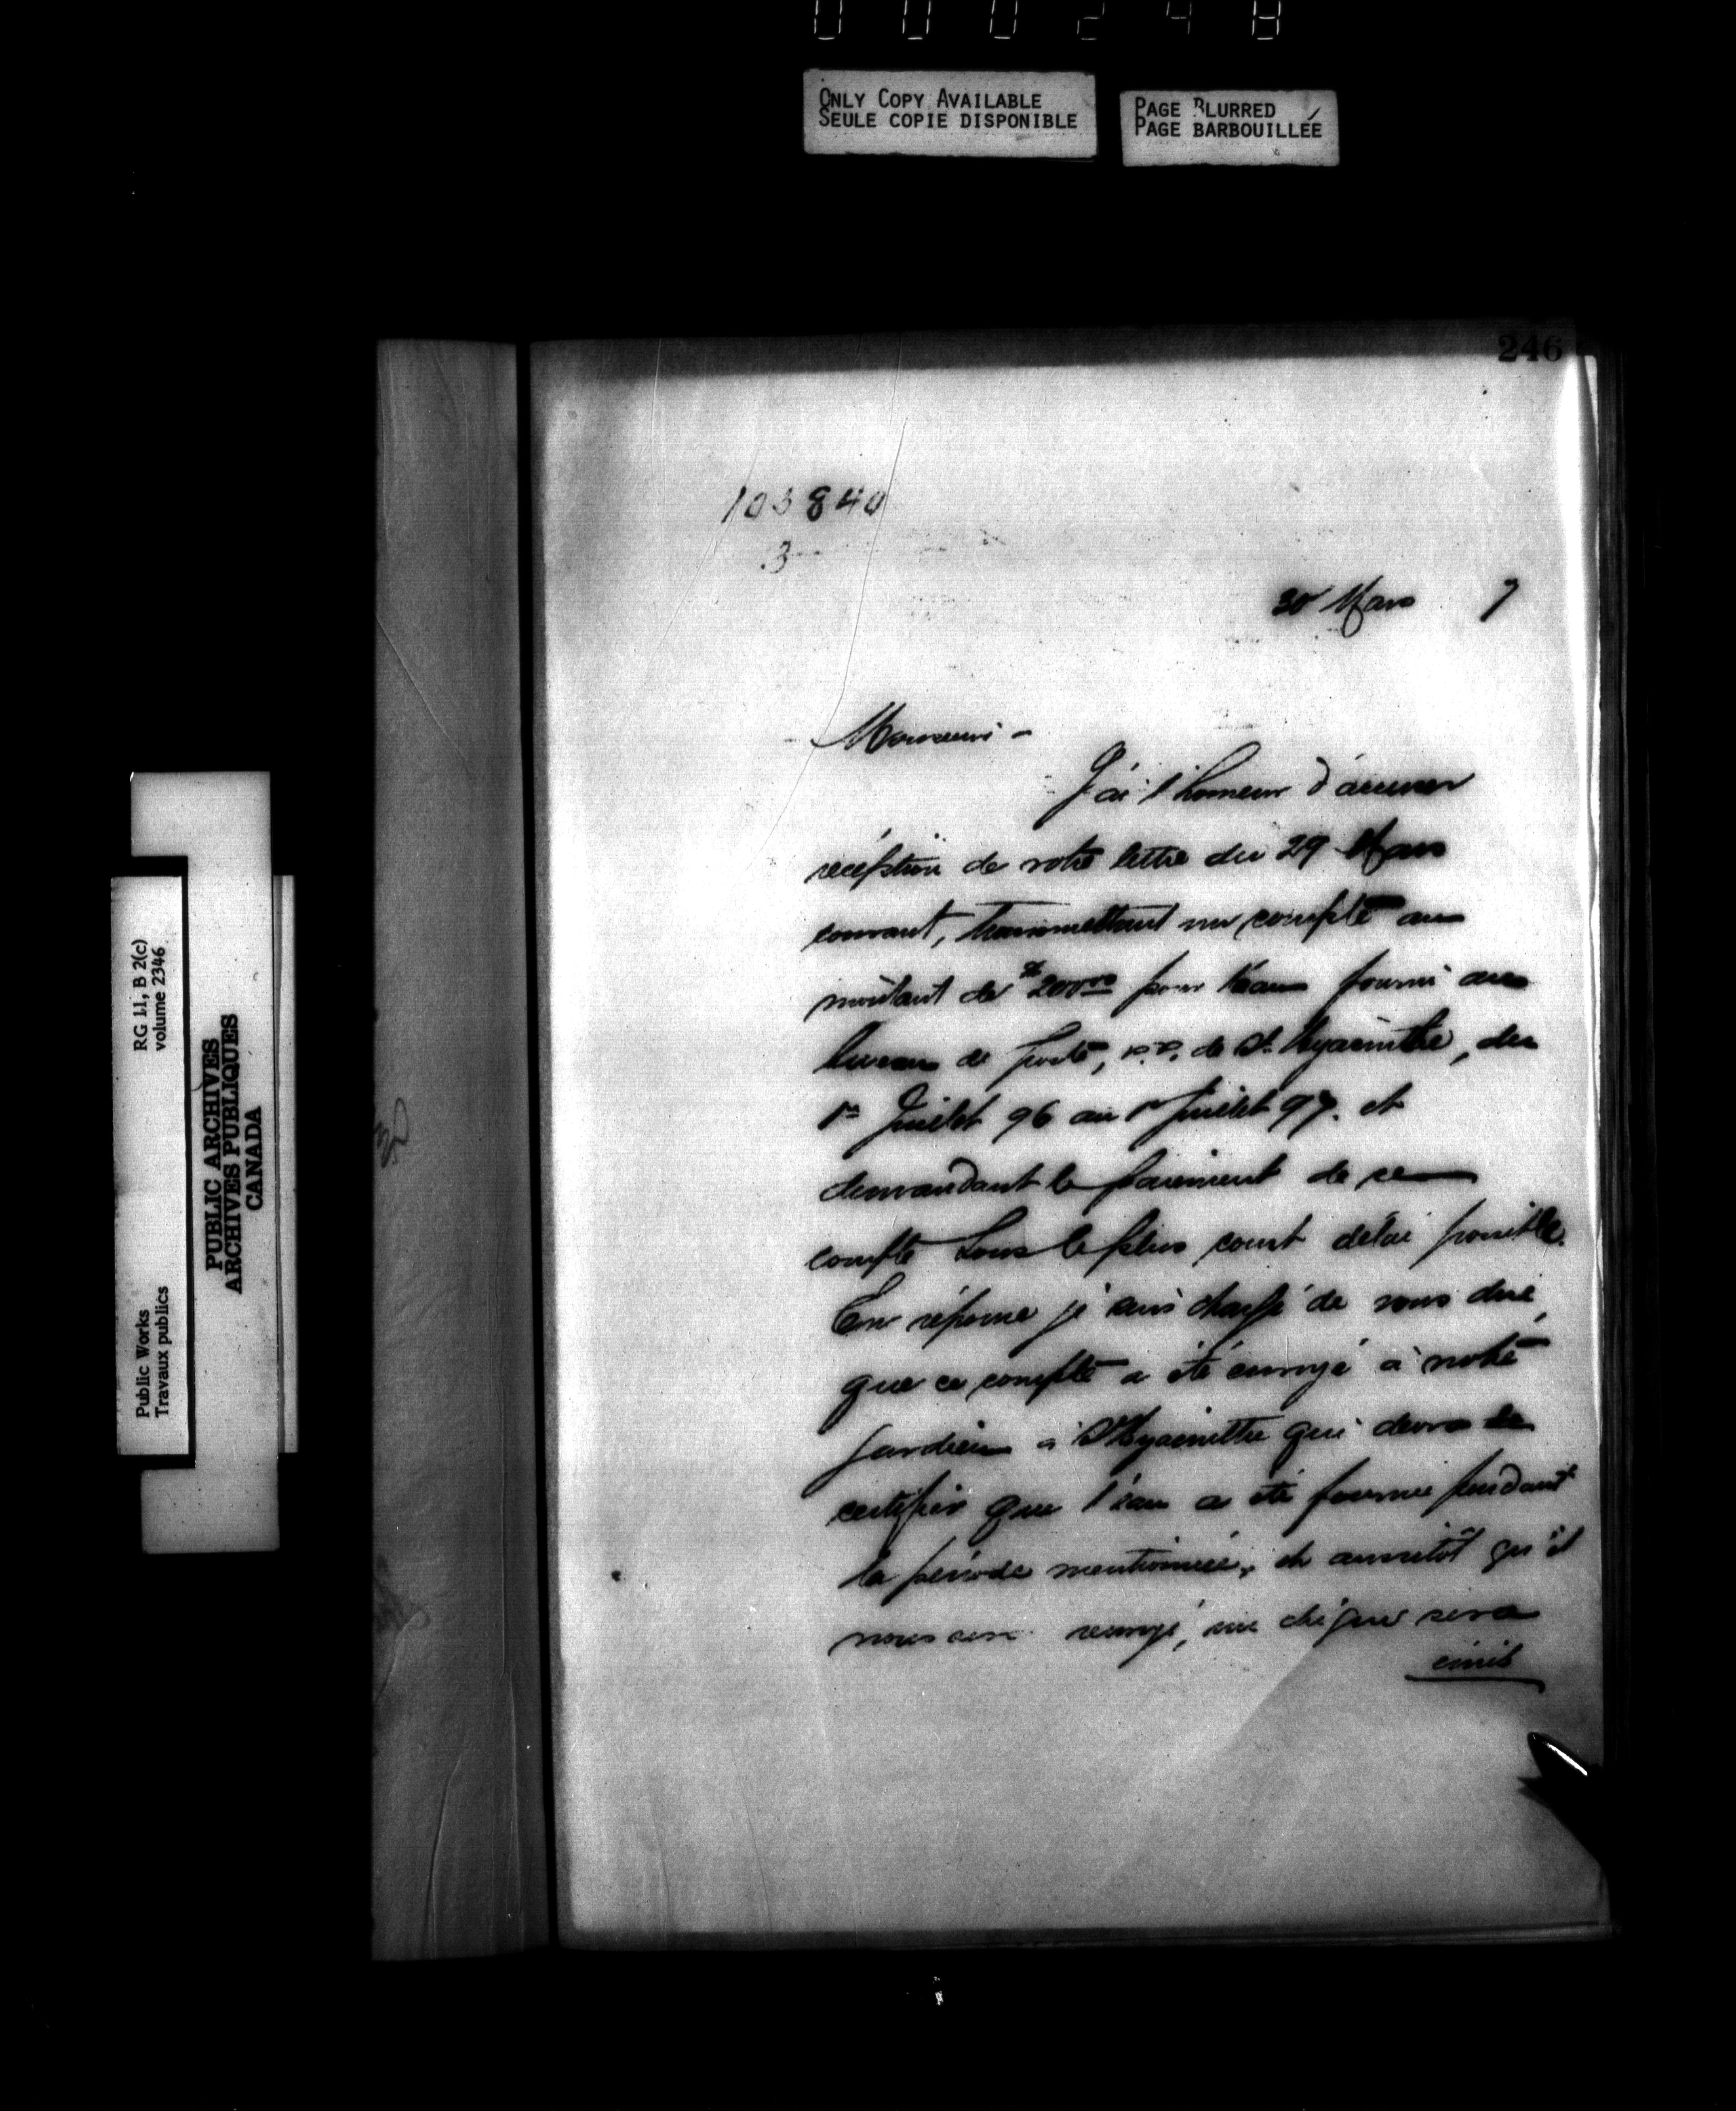 000248
ONLY COPY AVAILABLE
SEULE COPIE DISPONIBLE
PAGE BLURRED
PAGE BARBOUILLÉE
246
103840
3
30 Mars 7
Monsieur -
J'ai l'honneur d'accuser
réception de votre lettre du 29 Mars
courant, transmettant un compte au
montant de $200.00 pour l'eau fourni au
bureau de poste, P.Q. de St. Hyacinthe, du
1er Juillet 96 au 1er Juillet 97. et
demandant le paiement de ce
compte sous le plus court délai possible.
En réponse je suis chargé de vous dire,
que ce compte a été envoyé à notre
gardien à St Hyacinthe qui devra
certifier que l'eau a été fournie pendant
la période mentionnée, et aussitôt qu'il
nous sera renvoyé, un chèque sera
émis
RG 11, B 2(c)
volume 2346
Public Works
Travaux publics
PUBLIC ARCHIVES
ARCHIVES PUBLIQUES
CANADA